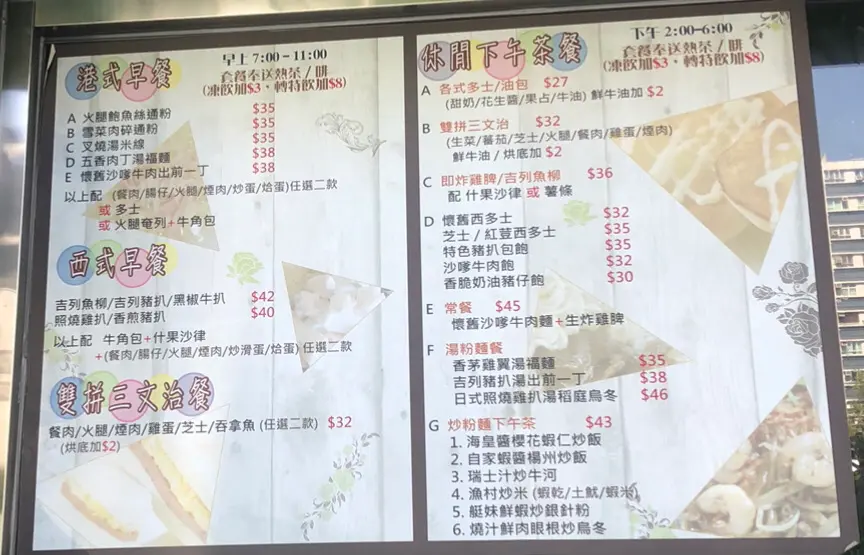 港式早餐
早上 7:00-11:00
套餐奉送熱茶/啡
(凍飲加$3，轉特飲加$8)
A 火腿鮑魚絲通粉 $35
B 雪菜肉碎通粉 $35
C 叉燒湯米線 $35
D 五香肉丁湯福麵 $38
E 懷舊沙嗲牛肉出前一丁 $38
以上配 (餐肉/腸仔/火腿/煙肉/炒蛋/烚蛋)任選二款
或 多士
或 火腿奄列+牛角包
西式早餐
吉列魚柳/吉列豬扒/黑椒牛扒 $42
照燒雞扒/香煎豬扒 $40
以上配 牛角包+什果沙律
+(餐肉/腸仔/火腿/煙肉/炒滑蛋/烚蛋) 任選二款
雙拼三文治餐
餐肉/火腿/煙肉/雞蛋/芝士/吞拿魚 (任選二款) $32
(烘底加$2)
休閒下午茶餐
下午 2:00-6:00
套餐奉送熱茶/啡
(凍飲加$3，轉特飲加$8)
A 各式多士/油包 $27
(甜奶/花生醬/果占/牛油) 鮮牛油加 $2
B 雙拼三文治 $32
(生菜/蕃茄/芝士/火腿/餐肉/雞蛋/煙肉)
鮮牛油/烘底加 $2
C 即炸雞髀/吉列魚柳 $36
配 什果沙律 或 薯條
D 懷舊西多士 $32
芝士/紅荳西多士 $35
特色豬扒包飽 $35
沙嗲牛肉飽 $32
香脆奶油豬仔飽 $30
E 常餐 $45
懷舊沙嗲牛肉麵+生炸雞髀
F 湯粉麵餐
香茅雞翼湯福麵 $35
吉列豬扒湯出前一丁 $38
日式照燒雞扒湯稻庭烏冬 $46
G 炒粉麵下午茶 $43
1. 海皇醬櫻花蝦仁炒飯
2. 自家蝦醬楊州炒飯
3. 瑞士汁炒牛河
4. 漁村炒米 (蝦乾/土魷/蝦米)
5. 艇妹鮮蝦炒銀針粉
6. 燒汁鮮肉眼根炒烏冬